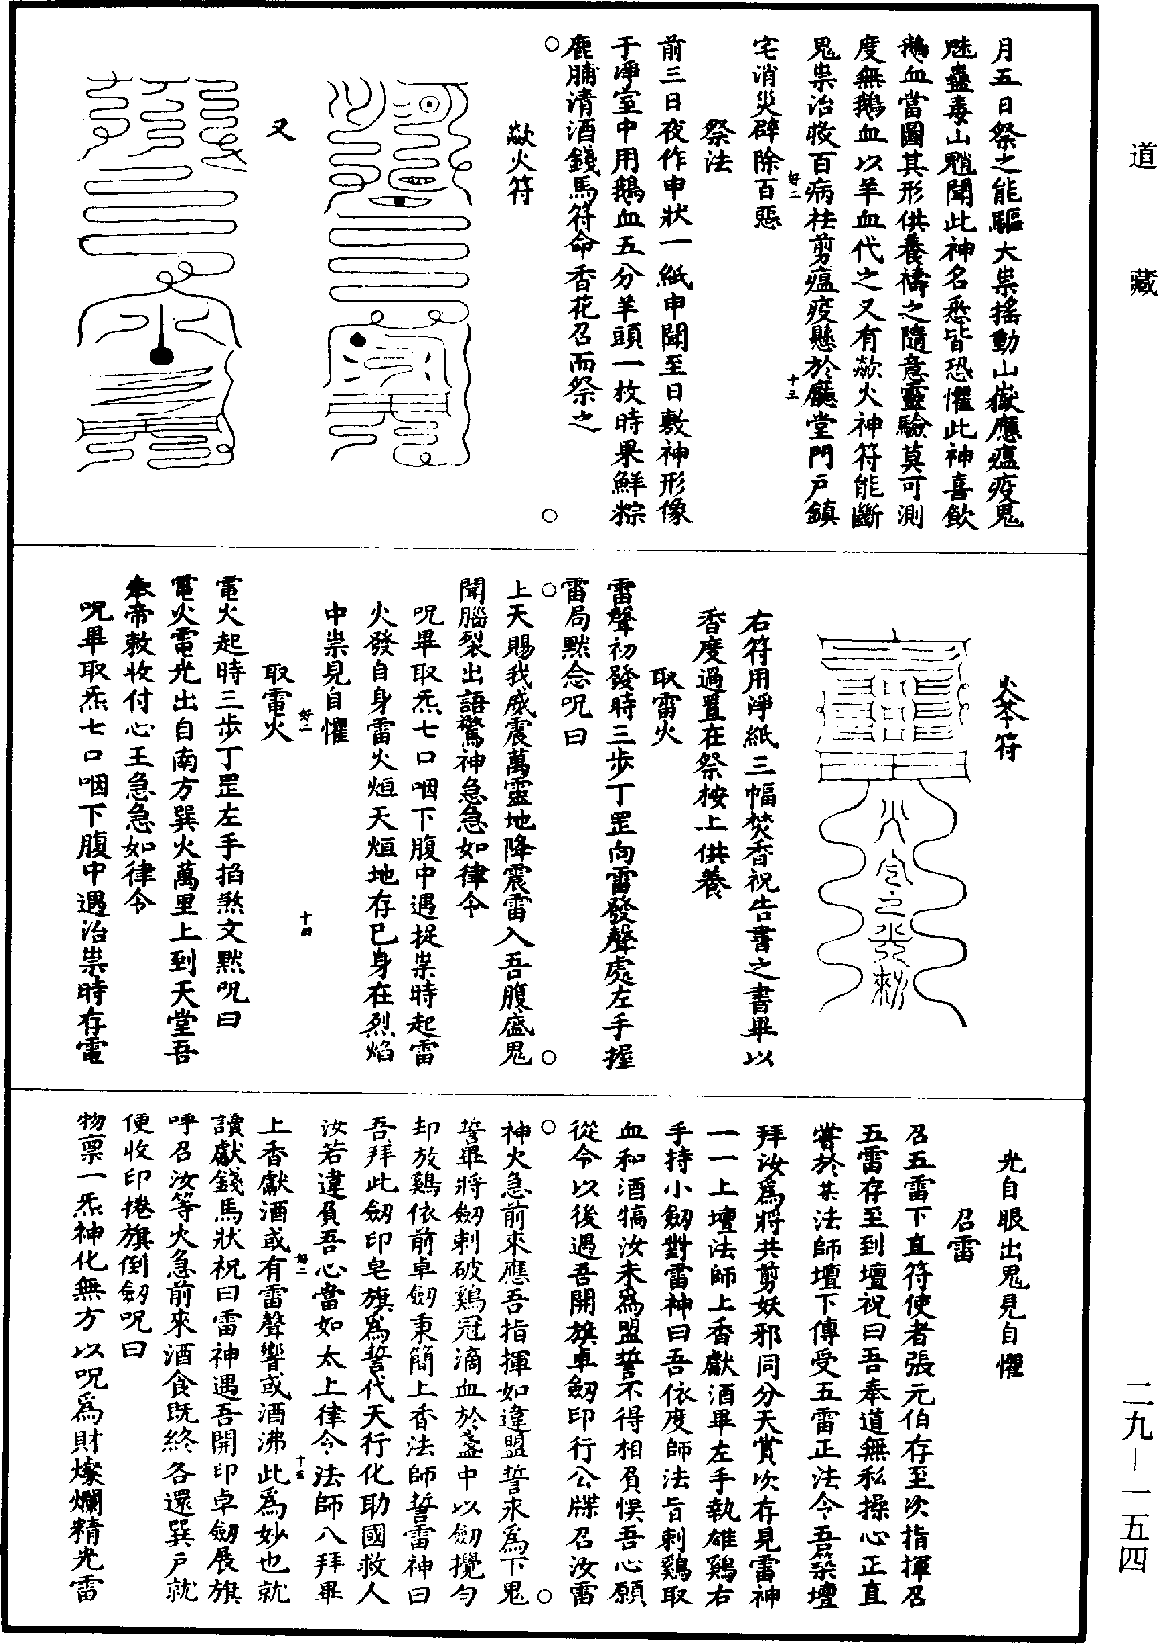 道藏
月五日祭之能驅大祟搖動山嶽應瘟疫鬼
魅蠱毒山魈聞此神名悉皆恐懼此神喜飲
鵝血當圖其形供養禱之隨意靈驗莫可測
度無鵝血以羊血代之又有歘火神符能斷
鬼祟治救百病袪剪瘟疫懸於廳堂門戶鎮
宅消災辟除百惡
祭法
前三日夜作申狀一紙申聞至日敷神形像
于淨室中用鵝血五分羊頭一枚時果鮮粽
鹿脯清酒錢馬符命香花召而祭之
歘火符
又
火苓符
火令之發勑
右符用淨紙三幅焚香祝告書之書畢以
香度過置在祭桉上供養
取雷火
雷聲初發時三步丁罡向雷發聲處左手握
雷局默念呪曰
上天賜我威震萬靈地降震雷入吾腹盛鬼
聞腦裂出語驚神急急如律令
呪畢取炁七口咽下腹中遇捉祟時起雷
火發自身雷火烜天烜地存已身在烈焰
中祟見自懼
取電火
電火起時三步丁罡左手掐煞文默呪曰
電火電光出自南方巽火萬里上到天堂吾
奉帝敕收付心王急急如律令
呪畢取炁七口咽下腹中遇治祟時存電
光自眼出鬼見自懼
召雷
召五雷下直符使者張元伯存至次指揮召
五雷存至到壇祝曰吾奉道無私操心正直
嘗於某法師壇下傳受五雷正法今吾築壇
拜汝爲將共剪妖邪同分天賞次存見雷神
一一上壇法師上香獻酒畢左手執雄鷄右
手持小劒對雷神曰吾依度師法旨刺鷄取
血和酒犒汝來爲盟誓不得相負悞吾心願
從今以後遇吾開旗卓劒印行公牒召汝雷
神火急前來應吾指揮如違盟誓永爲下鬼
誓畢將劒刺破鷄冠滴血於盞中以劒攪勻
却放鷄依前卓劒秉簡上香法師誓雷神曰
吾拜此劒印皂旗爲誓代天行化助國救人
汝若違負吾心當如太上律令法師八拜畢
上香獻酒或有雷聲響或酒沸此爲妙也就
讀獻錢馬狀祝曰雷神遇吾開印卓劒展旗
呼召汝等火急前來酒食既終各還巽戶就
便收印捲旗倒劒呪曰
物稟一炁神化無方以呪爲財燦爛精光雷
好二
十三
好二
十四
好二
十五
二九—一五四